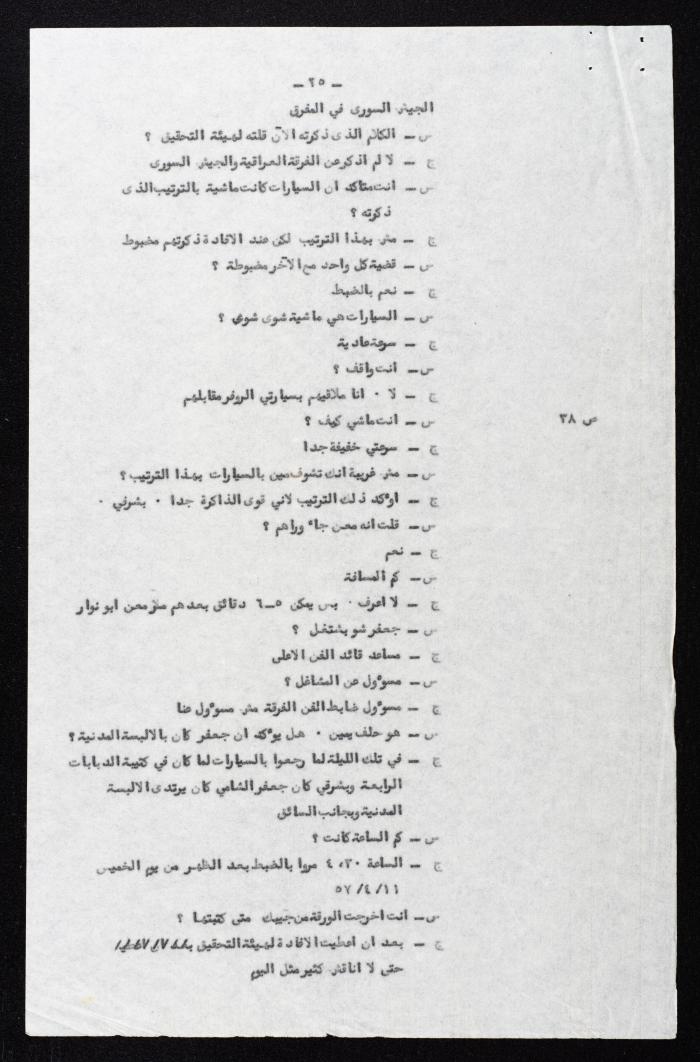 ـ ٢٥ ـ
الجيش السورى في المفرق
س ـ الكلام الذى ذكرته الآن قلته لهيئة التحقيق ؟
ج ـ لا لم اذكر عن الفرقة العراقية والجيش السورى
س ـ انت متاكد ان السيارات كانت ماشية بالترتيب الذى
ذكرته ؟
ج ـ مش بهذا الترتيب لكن عند الافادة ذكرتهم مضبوط
س ـ قضية كل واحد مع الآخر مضبوطة ؟
ج ـ نعم بالضبط
س ـ السيارات هي ماشية شوى شوى ؟
ج ـ سرعة عادية
س ـ انت واقف ؟
ج ـ لا ٠ انا ملاقيهم بسيارتي الروفر مقابلهم
س ـ انت ماشي كيف ؟
ص ٣٨
ج ـ سرعتي خفيفة جدا
س ـ مش غريبة انك تشوف مين بالسيارات بهذا الترتيب ؟
ج ـ اوٴكد ذلك الترتيب لاني قوى الذاكرة جدا ٠ بشرفي ٠
س ـ قلت انه معن جاء وراهم ؟
ج ـ نعم
س ـ كم المسافة
ج ـ لا اعرف ٠ بس يمكن ٥ـ٦ دقائق بعدهم مر معن ابو نوار
س ـ جعفر شو بشتغل ؟
ج ـ مساعد قائد الفن الاعلى
س ـ مسوٴول عن المشاغل ؟
ج ـ مسوٴول ضابط الفن الفرقة مش مسوٴول عنا
س ـ هو حلف يمين ٠ هل يوٴكد ان جعفر كان بالالبسة المدنية ؟
ج ـ في تلك الليلة لما رجعوا بالسيارات لما كان في كتيبة الدبابات
الرابعة وبشرفي كان جعفر الشامي كان يرتدى الالبسة
المدنية وبجانب السائق
س ـ كم الساعة كانت ؟
ج ـ الساعة ٤،٣٠ مروا بالضبط بعد الظهر من يوم الخميس
١١/ ٤/ ٥٧
س ـ انت اخرجت الورقة من جيبك متى كتبتها ؟
ج ـ بعد ان اعطيت الافادة لهيئة التحقيق
حتى لا اناقش كثير مثل اليوم